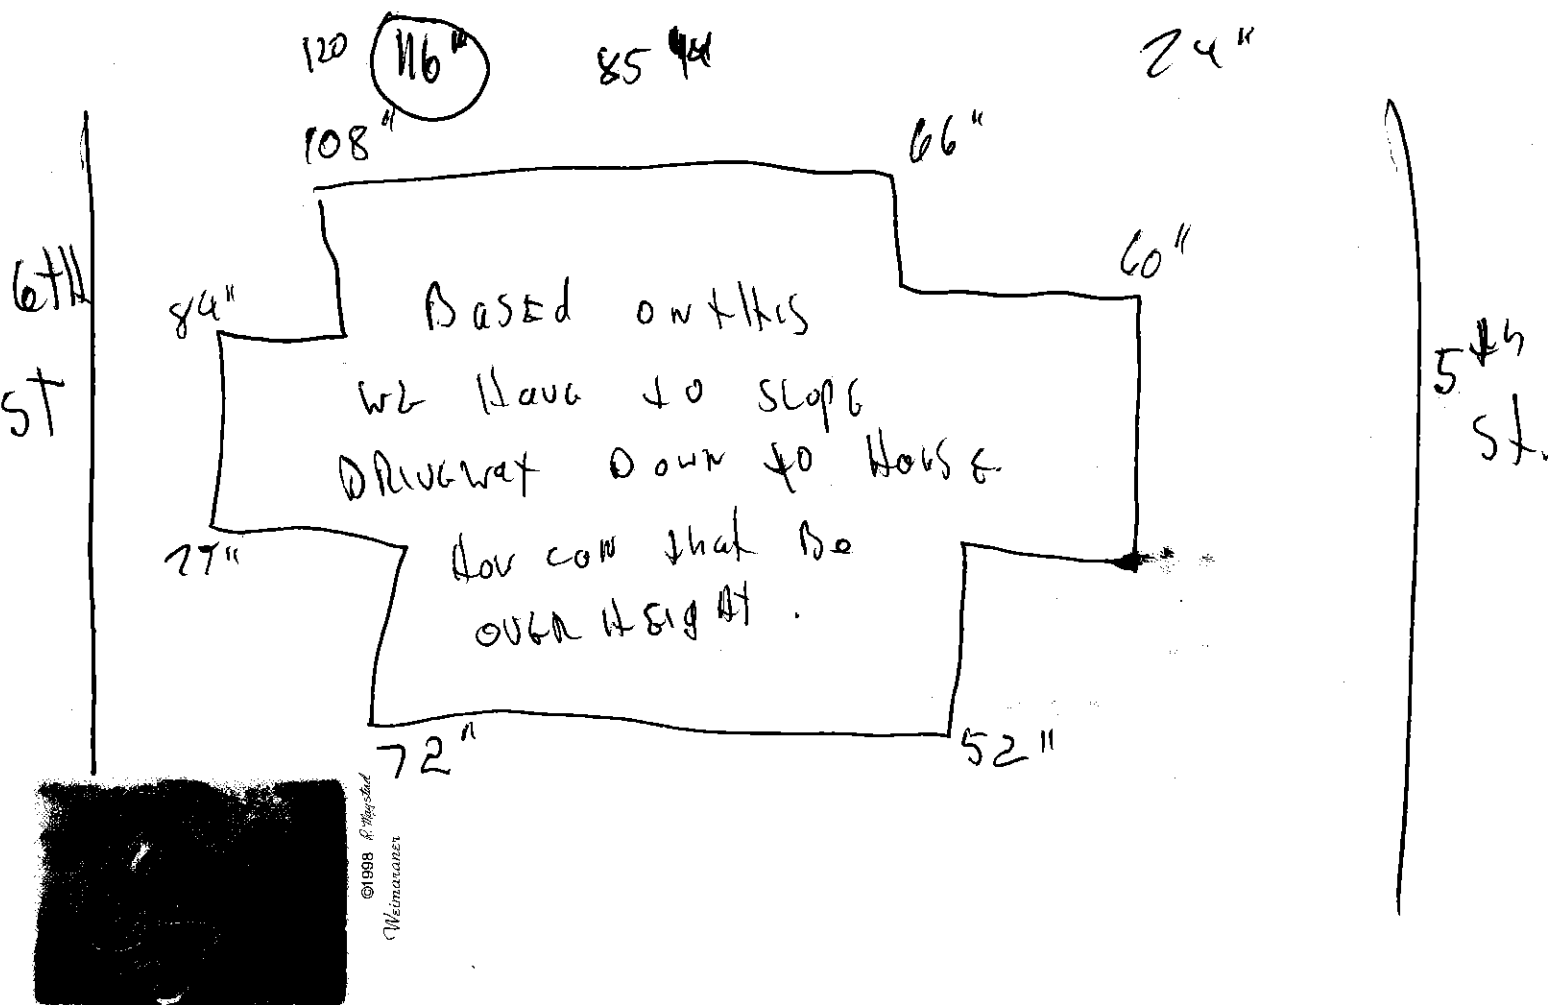 120 116" 85 24"
108" 66"
60"
6tH
St
84"
BasEd on tHis
wE Have to slope
DRIVEWAY Down to HousE.
How can that Be
OVER HEIgHt.
5th
St.
77"
72" 52"
©1998 R. Maystad
Weimaraner